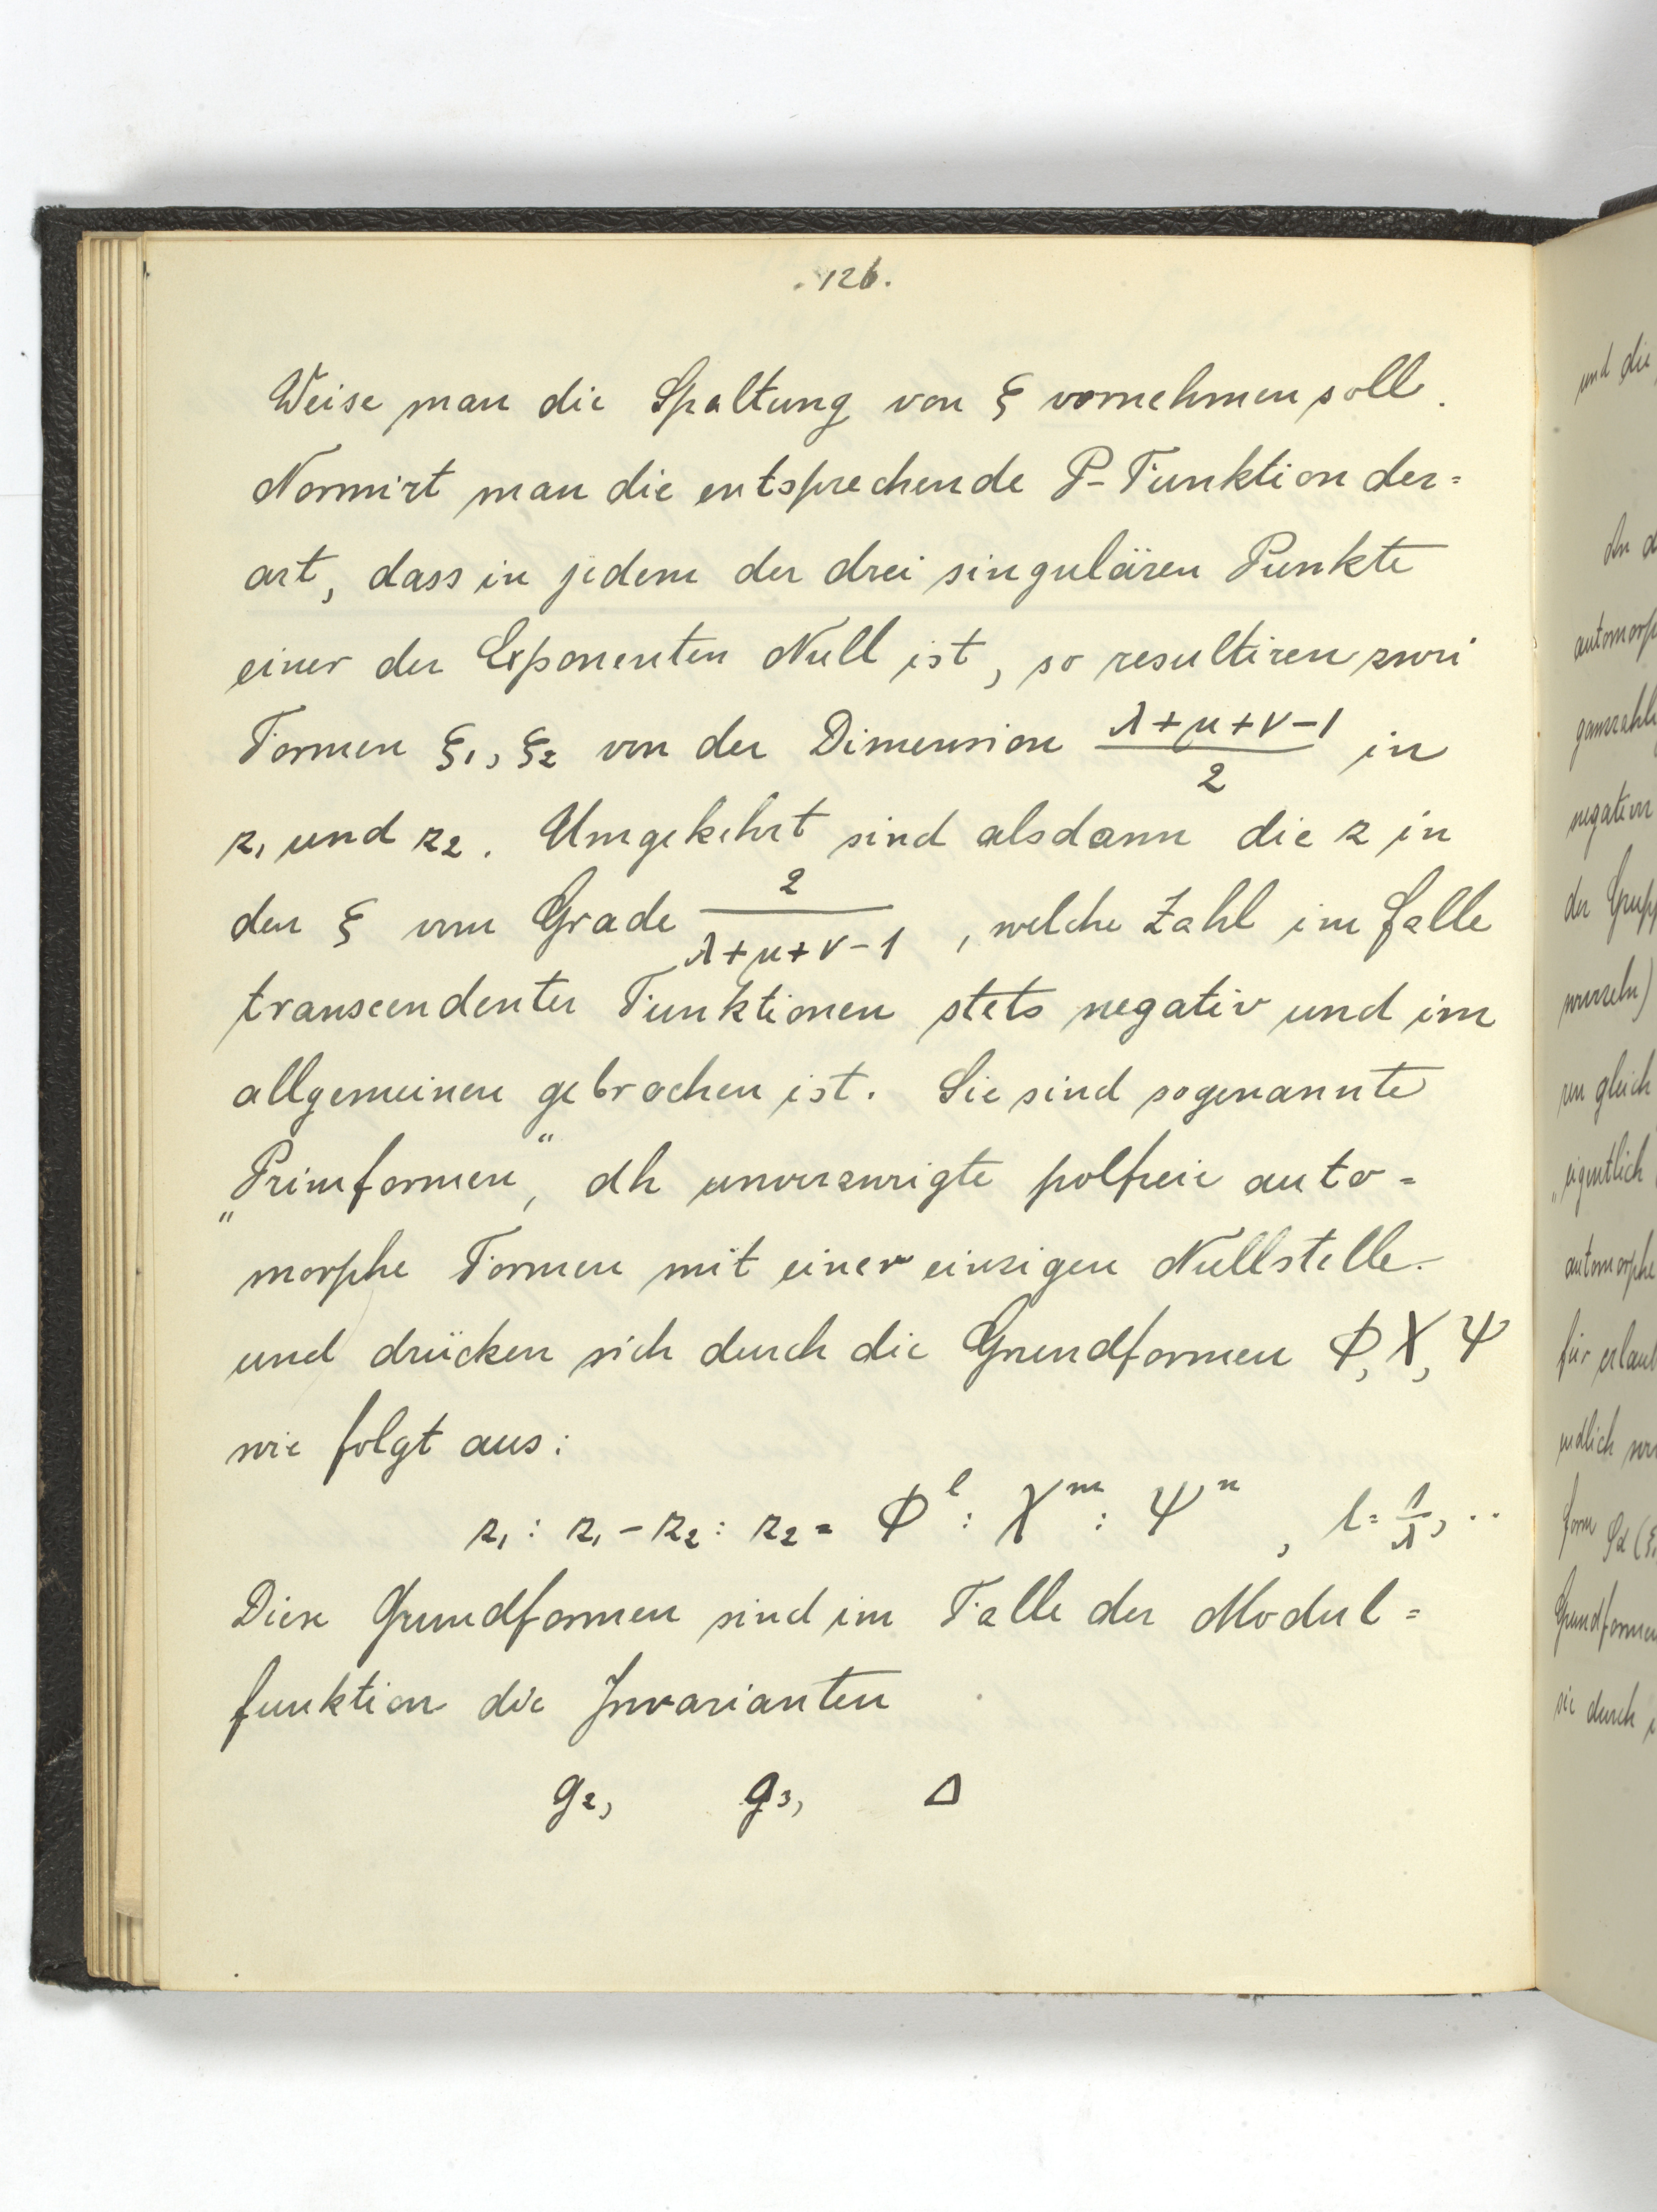 126.
Weise man die Spaltung von ξ vornehmen soll.
Normirt man die entsprechende P-Funktion der=
art, dass in jedem der drei singulären Punkte
einer der Exponenten Null ist, so resultiren zwei
Formen ξ₁, ξ₂ von der Dimension (λ+μ+ν-1)/2 in
z₁ und z₂. Umgekehrt sind alsdann die z in
den ξ vom Grade 2/(λ+μ+ν-1), welche Zahl im Falle
transcendenter Funktionen stets negativ und im
allgemeinen gebrochen ist. Sie sind sogenannte
„Primformen“, dh unverzweigte polfreie auto=
morphe Formen mit einer einzigen Nullstelle
und drücken sich durch die Grundformen Φ, Χ, Ψ
wie folgt aus:
z₁ : z₁ - z₂ : z₂ = Φˡ : Χᵐ : Ψⁿ, l = 1/λ, ..
Diese Grundformen sind im Falle der Modul=
funktion die Invarianten
g₂, g₃, Δ
und die
automorph
negativ
der Grupp
wurzeln)
ren gleich
„eigentlich
automorphe
für erlaub
endlich
form
Grundformen
sie durch